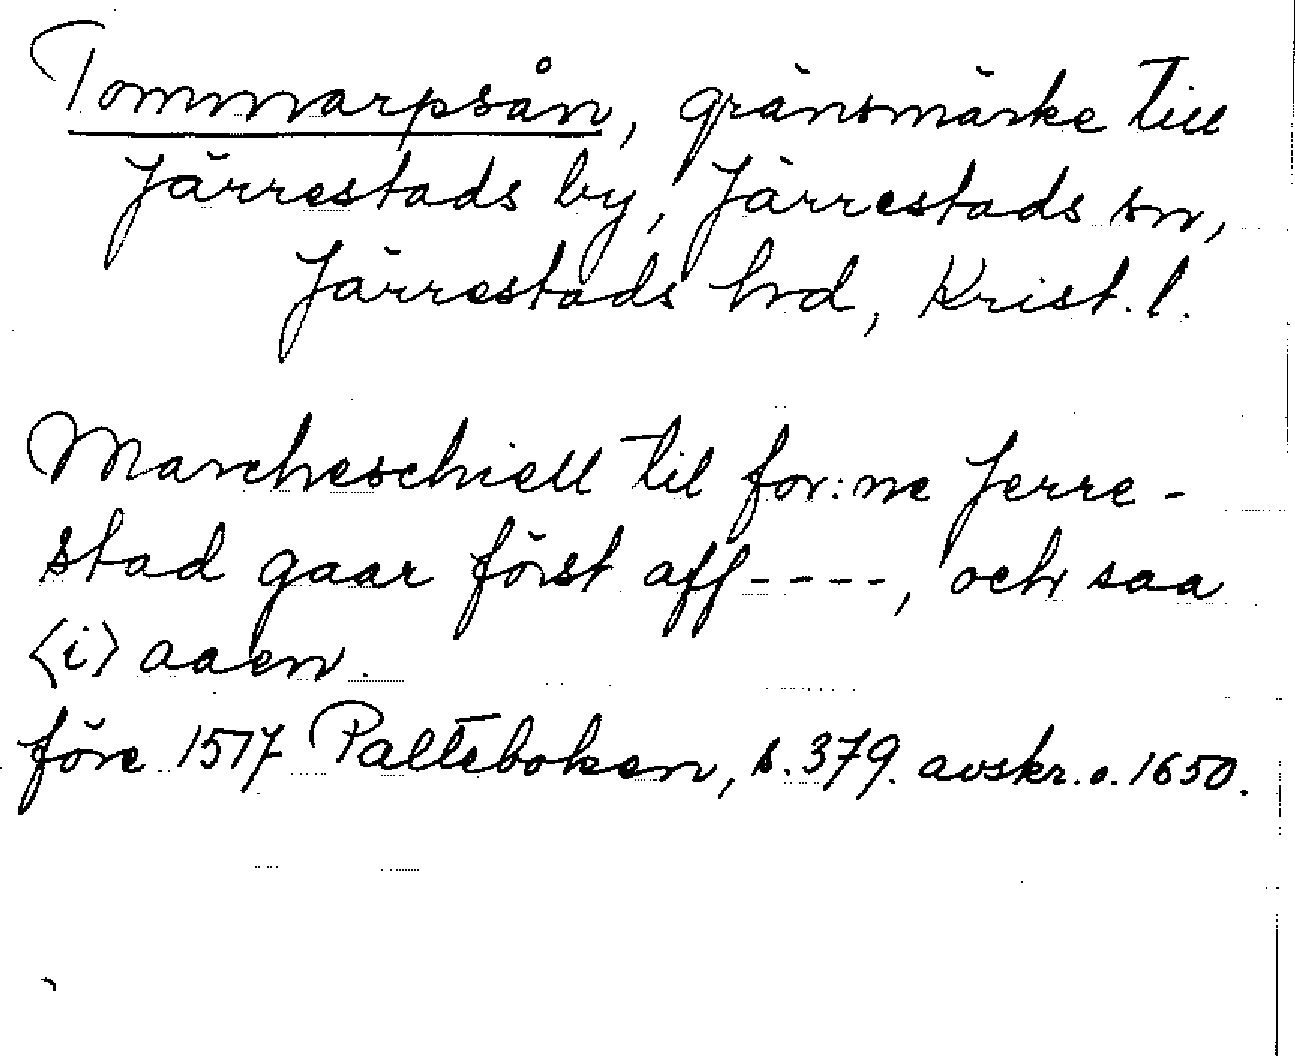 Tommarpsån, gränsmärke till
Järrestads by, Järrestads sn,
Järrestads hrd, Krist. l.
Marcheschiell til for:ne Jerre-
stad gaar först aff----, och saa
<i> aaen.
före 1517 Palteboken, s. 379. avskr. o. 1650.